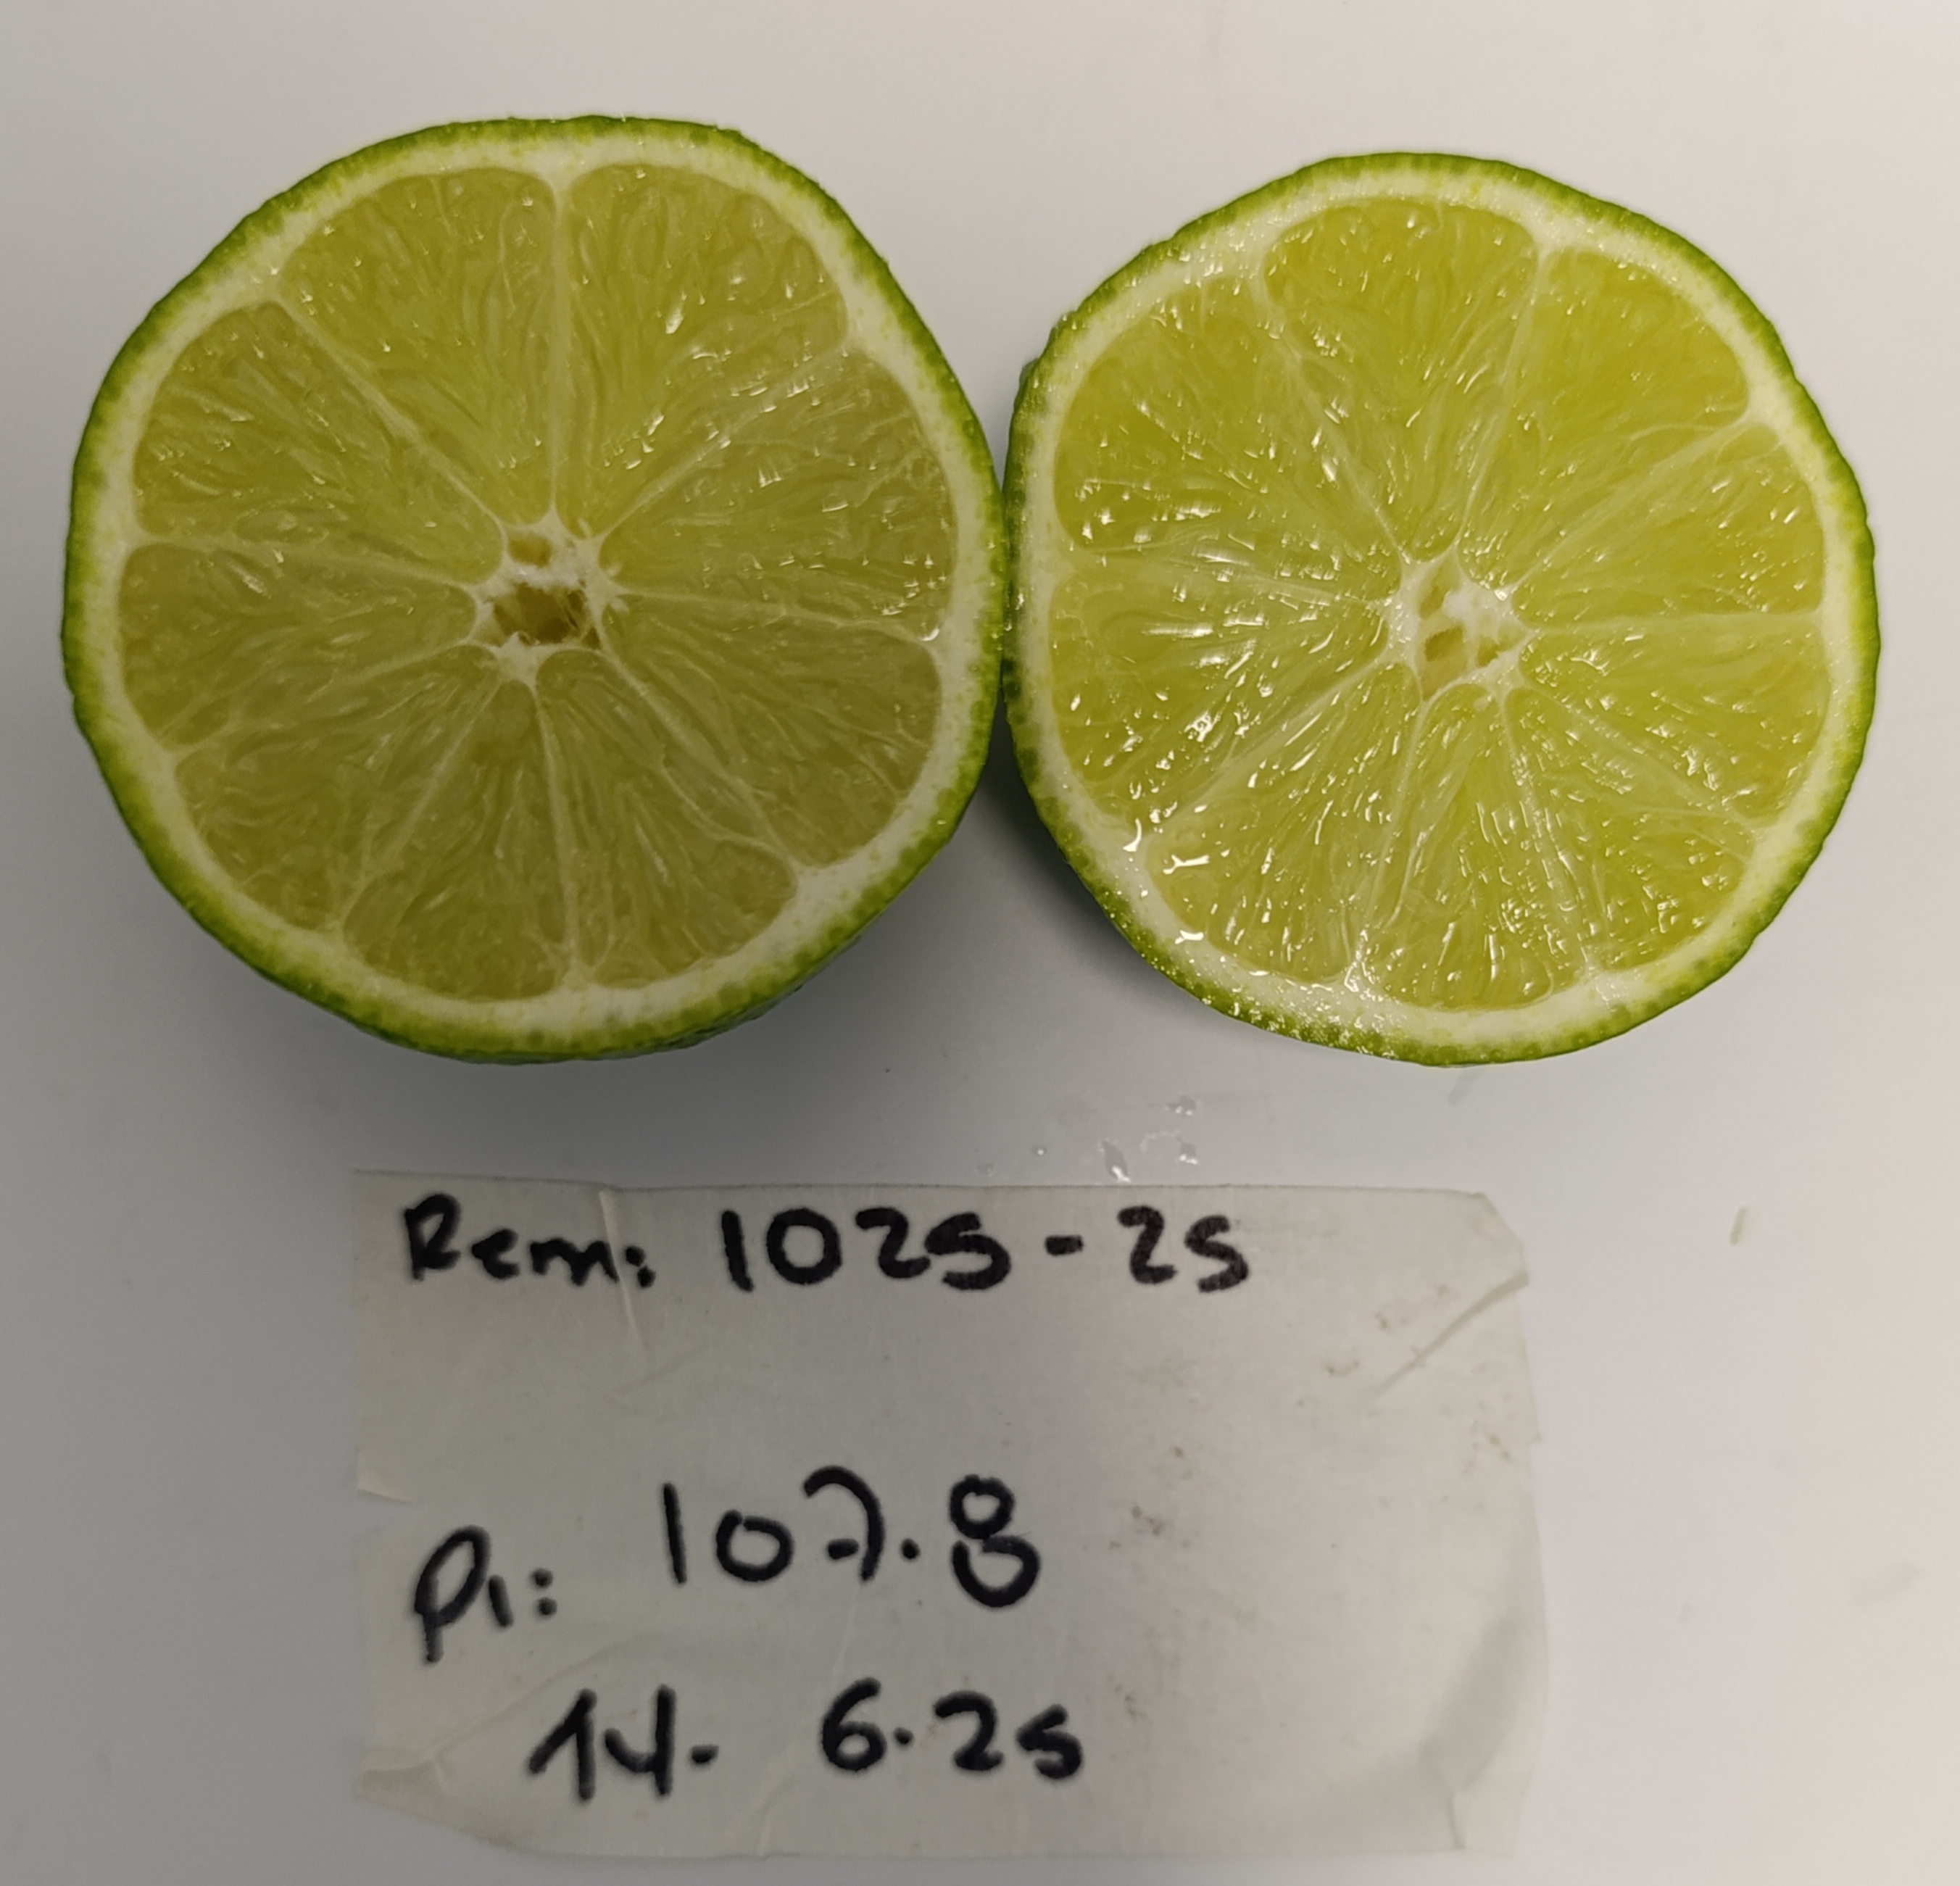 Rem: 1025-25
Pi: 107.8
14. 6.25